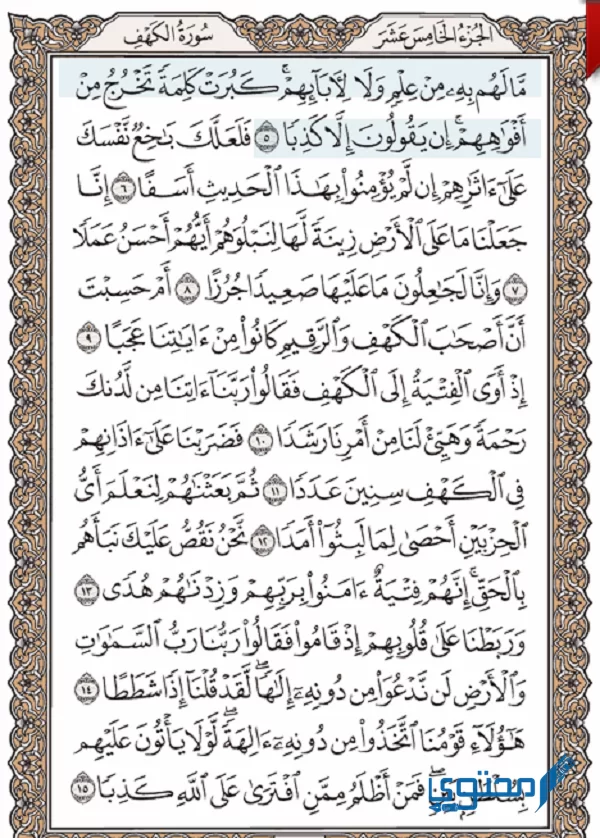 الجُزْءُ الخَامِسَ عَشَرَ
سُورَةُ الكَهْفِ
مَّا لَهُم بِهِۦ مِنْ عِلْمٍ وَلَا لِأٓبَآئِهِمْۚ كَبُرَتْ كَلِمَةً تَخْرُجُ مِنْ
أَفْوَٰهِهِمْۚ إِن يَقُولُونَ إِلَّا كَذِبًا ٥ فَلَعَلَّكَ بَٰخِعٌ نَّفْسَكَ
عَلَىٰٓ ءَاثَٰرِهِمْ إِن لَّمْ يُؤْمِنُوا۟ بِهَٰذَا الْحَدِيثِ أَسَفًا ٦ إِنَّا
جَعَلْنَا مَا عَلَى الْأَرْضِ زِينَةً لَّهَا لِنَبْلُوَهُمْ أَيُّهُمْ أَحْسَنُ عَمَلًا
٧ وَإِنَّا لَجَٰعِلُونَ مَا عَلَيْهَا صَعِيدًا جُرُزًا ٨ أَمْ حَسِبْتَ
أَنَّ أَصْحَٰبَ الْكَهْفِ وَالرَّقِيمِ كَانُوا۟ مِنْ ءَايَٰتِنَا عَجَبًا ٩
إِذْ أَوَى الْفِتْيَةُ إِلَى الْكَهْفِ فَقَالُوا۟ رَبَّنَآ ءَاتِنَا مِن لَّدُنكَ
رَحْمَةً وَهَيِّئْ لَنَا مِنْ أَمْرِنَا رَشَدًا ١٠ فَضَرَبْنَا عَلَىٰٓ ءَاذَانِهِمْ
فِي الْكَهْفِ سِنِينَ عَدَدًا ١١ ثُمَّ بَعَثْنَٰهُمْ لِنَعْلَمَ أَيُّ
الْحِزْبَيْنِ أَحْصَىٰ لِمَا لَبِثُوٓا۟ أَمَدًا ١٢ نَّحْنُ نَقُصُّ عَلَيْكَ نَبَأَهُم
بِالْحَقِّۚ إِنَّهُمْ فِتْيَةٌ ءَامَنُوا۟ بِرَبِّهِمْ وَزِدْنَٰهُمْ هُدًى ١٣
وَرَبَطْنَا عَلَىٰ قُلُوبِهِمْ إِذْ قَامُوا۟ فَقَالُوا۟ رَبُّنَا رَبُّ السَّمَٰوَٰتِ
وَالْأَرْضِ لَن نَّدْعُوَا۟ مِن دُونِهِۦٓ إِلَٰهًاۖ لَّقَدْ قُلْنَآ إِذًا شَطَطًا ١٤
هَٰٓؤُلَآءِ قَوْمُنَا اتَّخَذُوا۟ مِن دُونِهِۦٓ ءَالِهَةًۖ لَّوْلَا يَأْتُونَ عَلَيْهِم
بِسُلْطَٰنٍۭ بَيِّنٍۖ فَمَنْ أَظْلَمُ مِمَّنِ افْتَرَىٰ عَلَى اللَّهِ كَذِبًا ١٥
محتوى